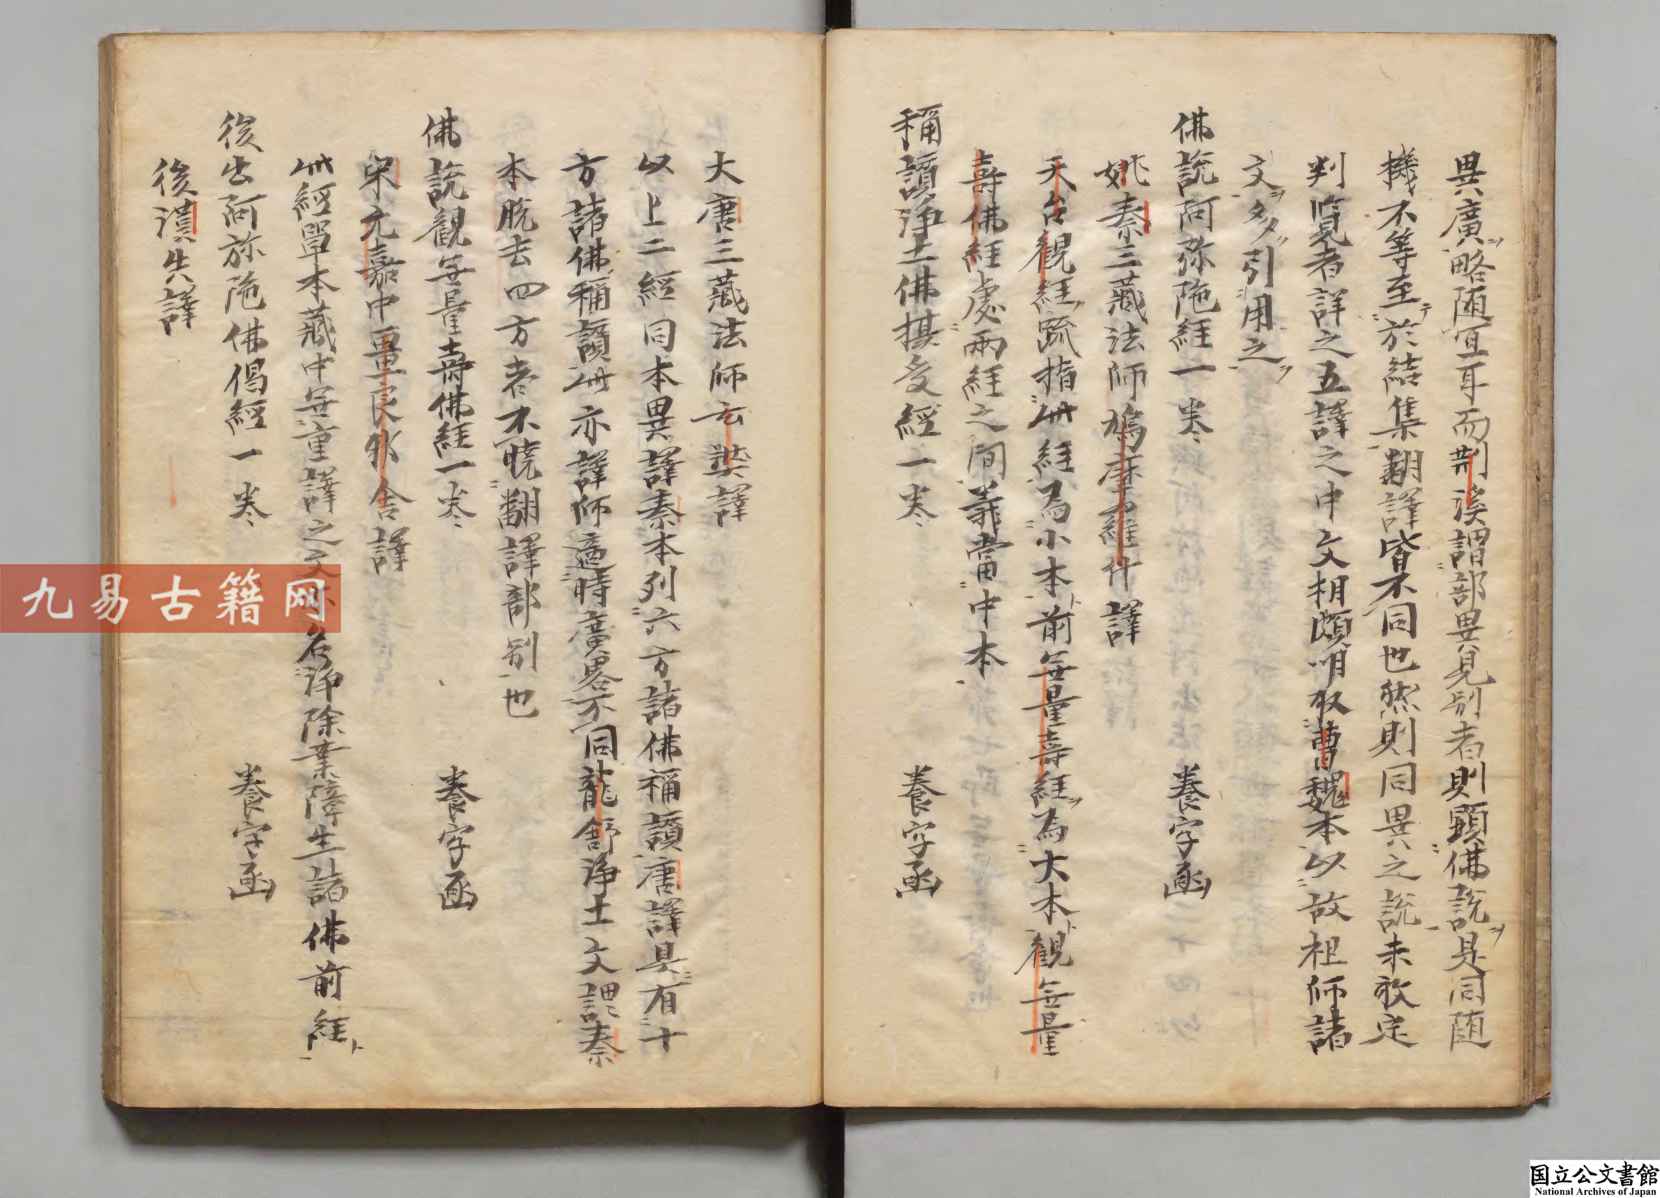 異廣略随宜耳而荆溪謂部異見別者則顕佛説是同随
機不等至於結集翻譯皆不同也然則同異之説未敢定
判覧者詳之五譯之中文相頗明取曹魏本以故祖師諸
文多引用之
佛説阿弥陁経一巻 養字函
姚秦三藏法師鳩摩羅什譯
天台観経疏指此経為小本前無量壽経為大本観無量
壽佛経處両経之間義當中本
稱讃浄土佛摂受経一巻 養字函
大唐三藏法師玄奘譯
以上二経同本異譯秦本列六方諸佛稱讃唐譯具有十
方諸佛稱讃此亦譯師適時廣畧不同龍舒浄土文謂秦
本脱去四方者不暁翻譯部別也
佛説観無量壽佛経一巻 養字函
宋元嘉中畺良耶舎譯
此経單本藏中無重譯之文 名浄除業障生諸佛前経
後出阿弥陁佛偈経一巻 養字函
後漢失譯
九易古籍网
国立公文書館
National Archives of Japan